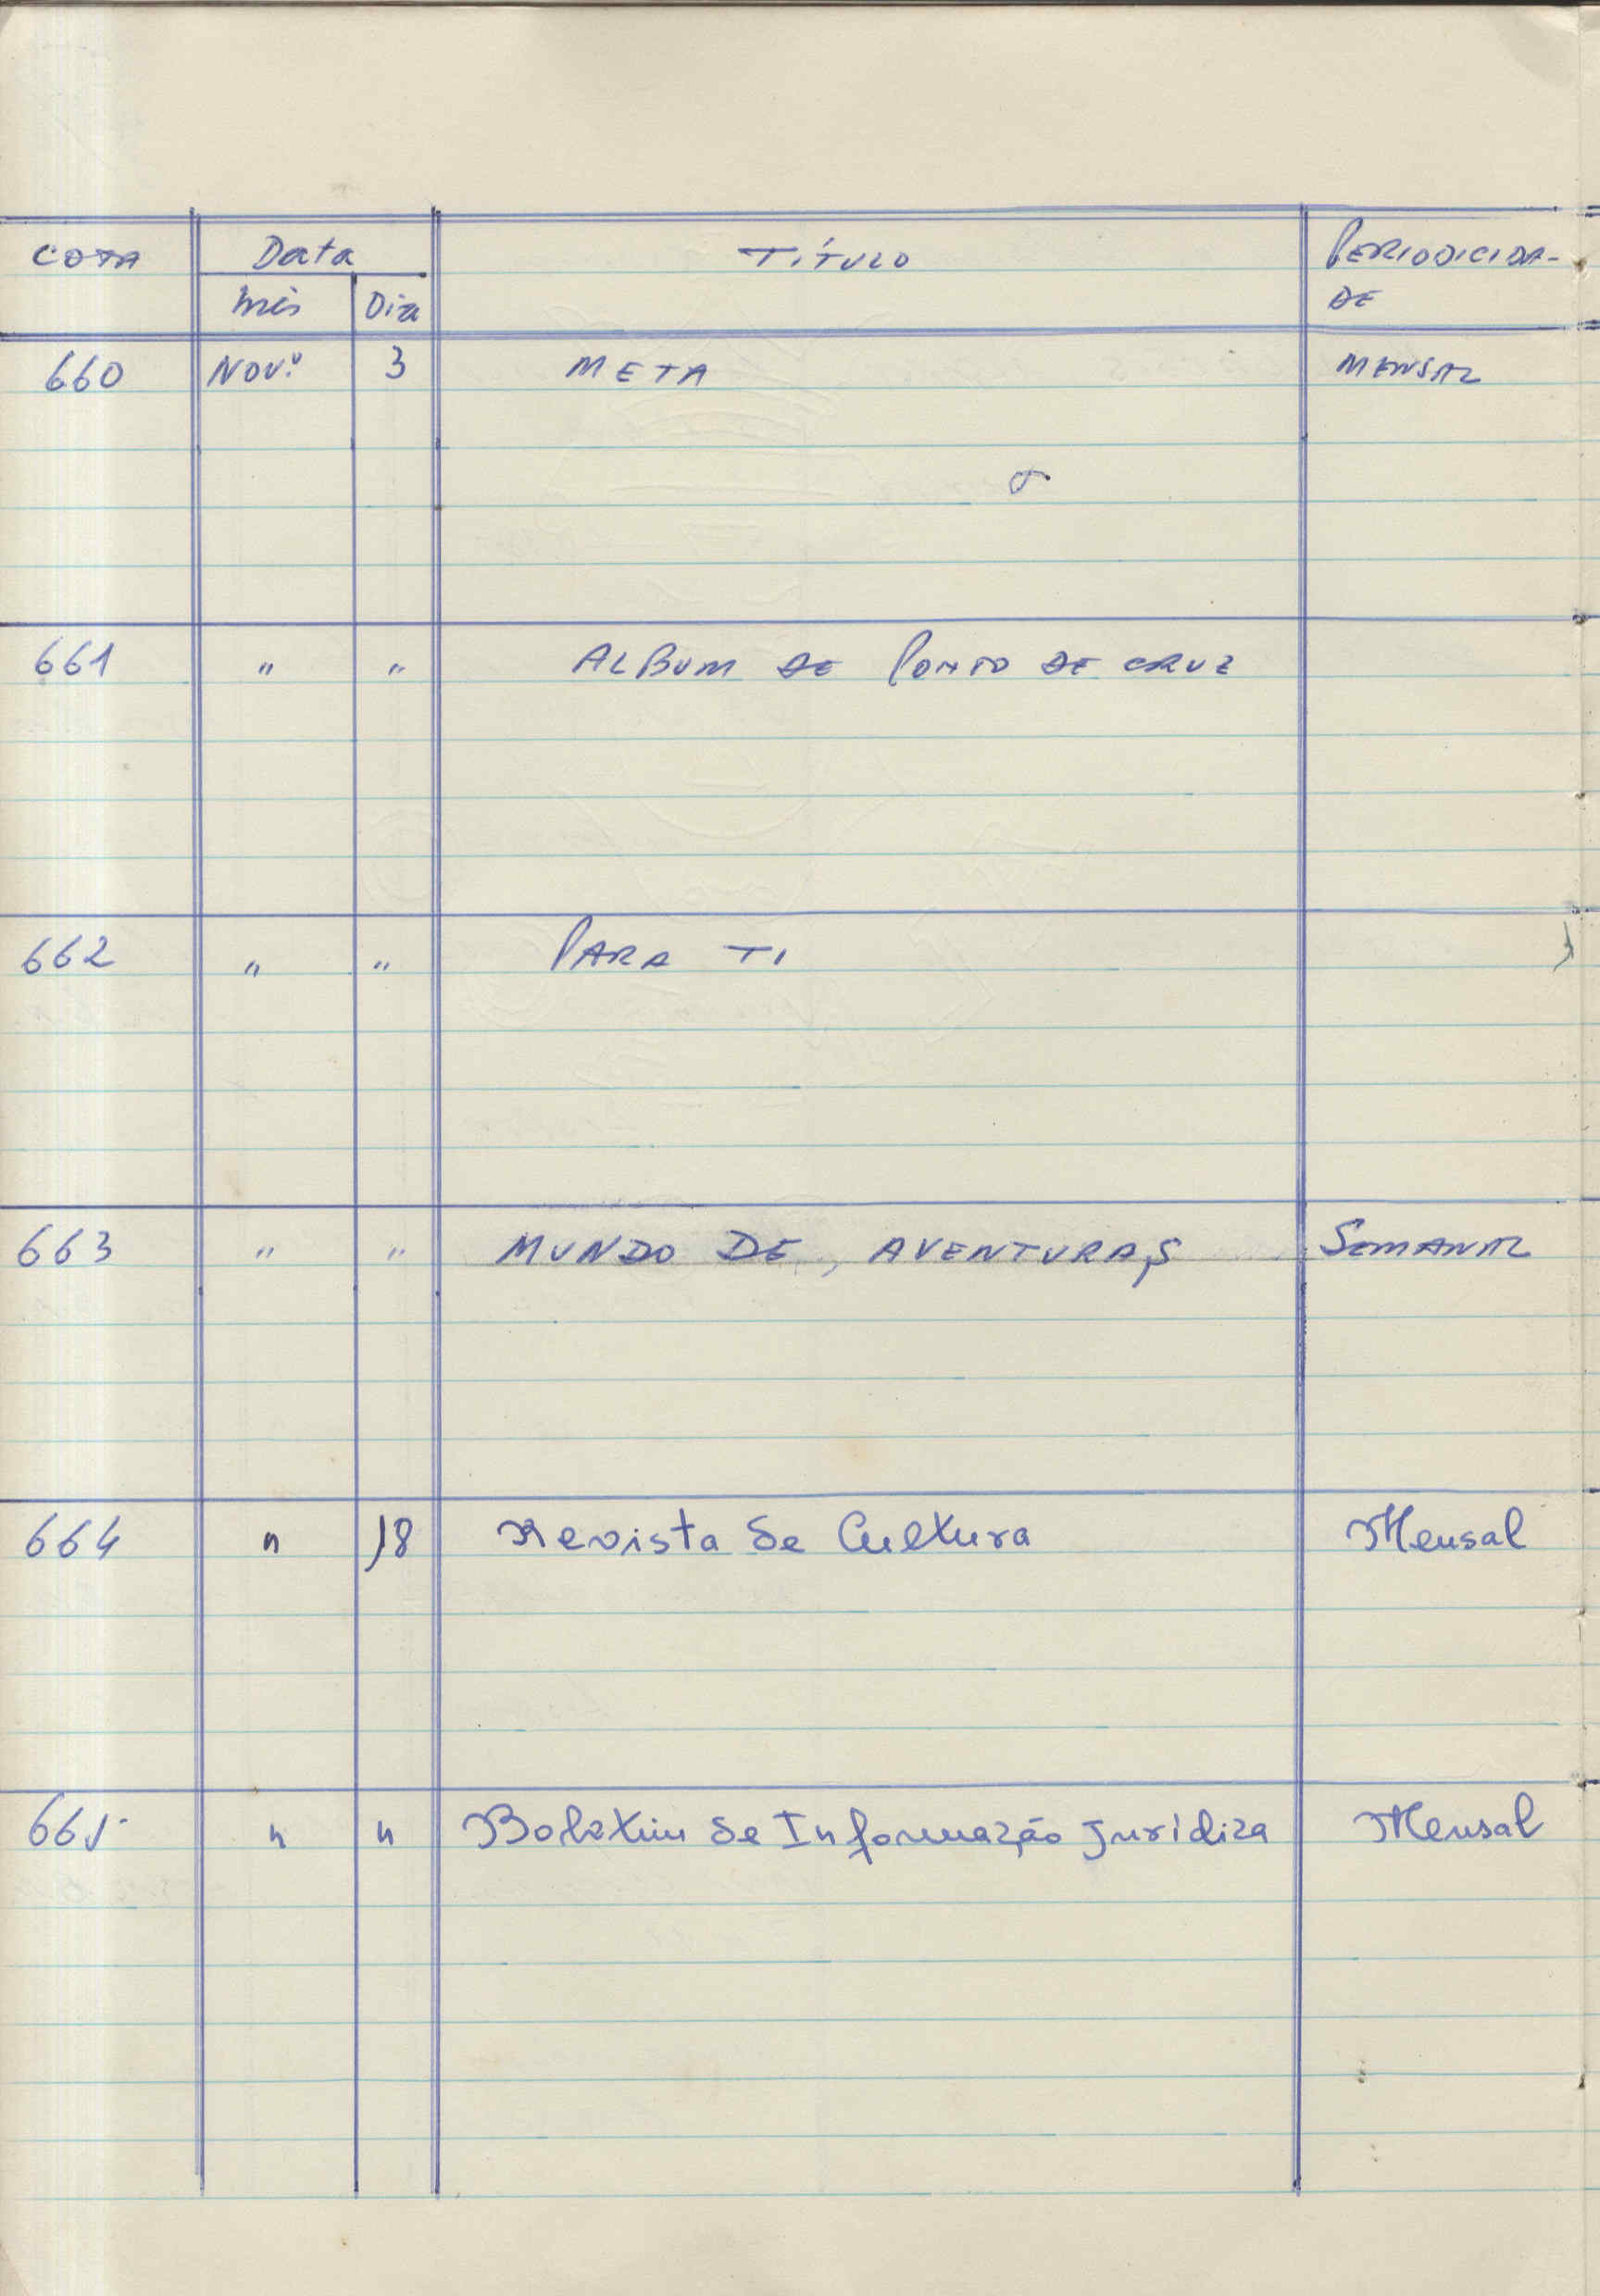 COTA Data TÍTULO PERIODICIDA-
Mês Dia DE
660 NOV.º 3 META MENSAL
661 " " ALBUM DE PONTO DE CRUZ
662 " " PARA TI
663 " " MUNDO DE AVENTURAS SEMANAL
664 " 18 Revista de Cultura Mensal
665 " " Boletim de Informação Jurídica Mensal